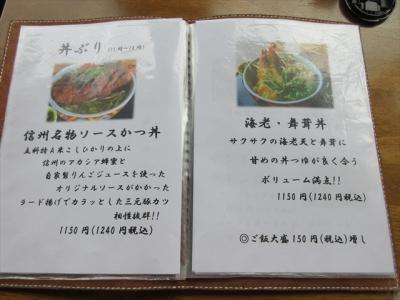 丼ぶり
信州名物ソースかつ丼
立科特A米こしひかりの上に
信州のアカシア蜂蜜と
自家製りんごジュースを使った
オリジナルソースがかかった
ラード揚げでカラッとした三元豚カツ
相性抜群!!
1150円(1240円税込)
海老・舞茸丼
サクサクの海老天と舞茸に
甘めの丼つゆが良く合う
ボリューム満点!!
1150円(1240円税込)
◎ご飯大盛150円(税込)増し